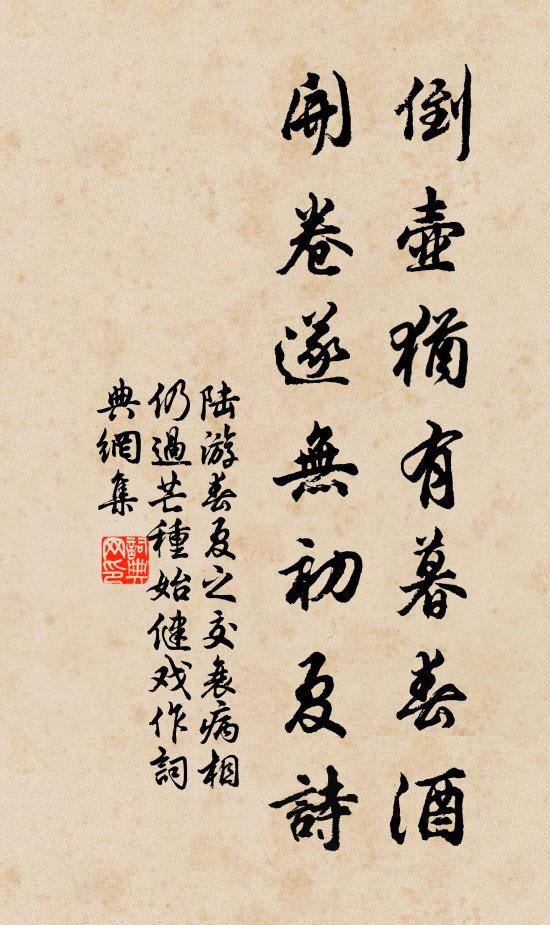 倒壺猶有暮春酒
開卷遂無初夏詩
陆游春夏之交衰病相
仍過芒種始健戏作詞
典網集
詞典
网印